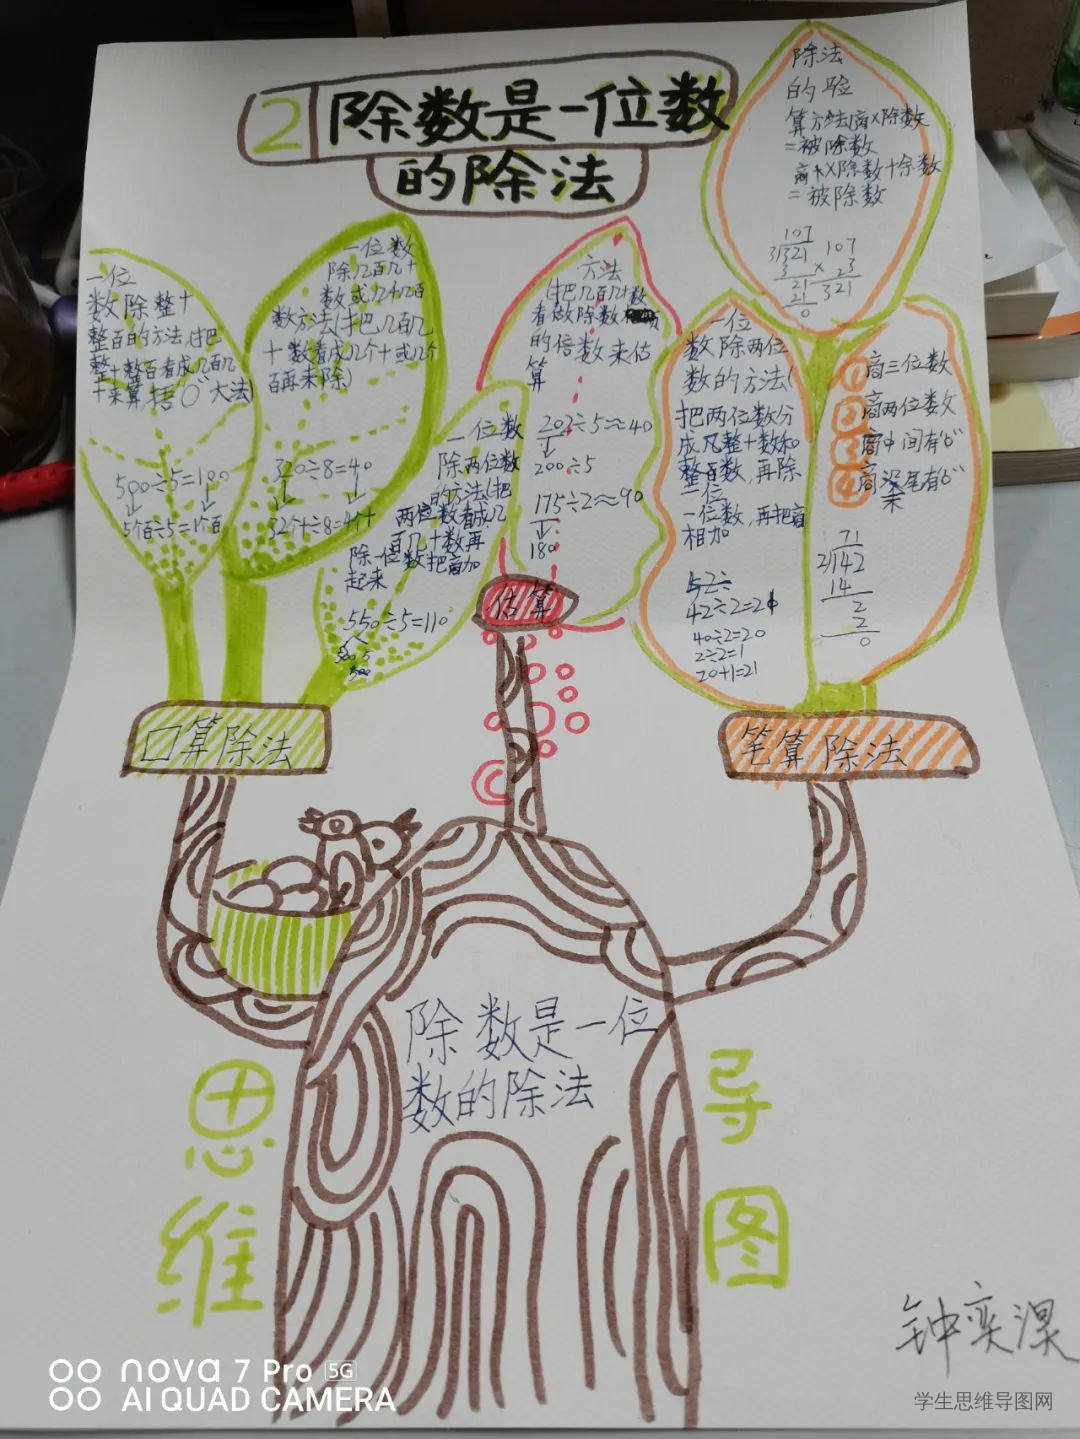 2 除数是一位数
的除法
除法
的验
算方法商×除数
=被除数
商×除数+余数
=被除数
107
3)321
3
21
21
0
107
× 23
321
一位
数除整十
整百的方法(把
整十数百看成几百几
十来算捂"0"大法)
500÷5=100
5个百÷5=1个百
一位数
除几百几十
数或几十几百
数方法(才把几百几
十数看成几个十或几个
百再来除)
320÷8=40
32个十÷8=4个十
一位数
除两位数
的方法(把
两位数看成几
百几十数再
除一位数把商加
起来
550÷5=110
500 5
方法
(才把几百几十数
看做除数
的倍数来估
算
202÷5≈40
200÷5
175÷2≈90
180
一位
数除两位
数的方法(
把两位数分
成几整十数和
整百数,再除
一位
一位数,再把商
相加
52÷
42÷2=21
40÷2=20
2÷2=1
20+1=21
①商三位数
②商两位数
③商中间有"0"
④商没尾有"0"
果
71
2)142
14
2
2
0
估算
口算除法
笔算除法
除数是一位
数的除法
思维
导图
钟奕淏
nova 7 Pro 5G
AI QUAD CAMERA
学生思维导图网